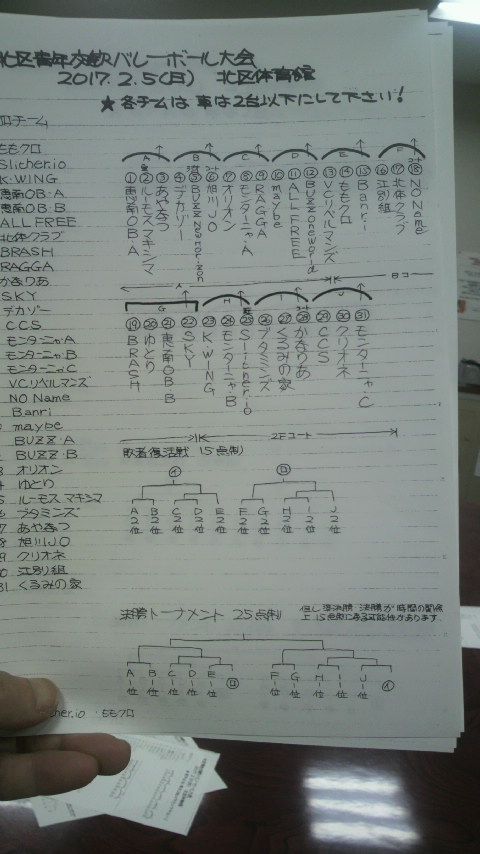 北区青年交歓バレーボール大会
2017.2.5(日) 北区体育館
★各チームは 車は2台以下にして下さい!
チーム
ももクロ
Slicher.io
K・WING
恵南OB・A
恵南OB・B
ALL FREE
北体クラブ
BRASH
RAGGA
かまりあ
SKY
デカゾー
CCS
モンターニャ・A
モンターニャ・B
モンターニャ・C
VCリベルマンズ
NO Name
Banri
maybe
BUZZ・A
BUZZ・B
オリオン
ゆとり
ルーモス マキシマ
ブタミンズ
あやまつ
旭川JO
クリオネ
江別組
31 くるみの家
A B C D E F
① 恵南OB・A
② ルーモスマキシマ
③ あやまつ
④ デカゾー
⑤ BUZZ Newhorizon
⑥ 旭川JO
⑦ オリオン
⑧ モンターニャ・A
⑨ RAGGA
⑩ maybe
⑪ ALL FREE
⑫ BUZZoneworld
⑬ VCリベルマンズ
⑭ ももクロ
⑮ Banri
⑯ 江別組
⑰ 北体クラブ
⑱ NO Name
Bコー
G H I J
⑲ BRASH
⑳ ゆとり
㉑ 恵南OB B
㉒ SKY
㉓ K・WING
㉔ モンターニャ・B
㉕ Slicher.io
㉖ ブタミンズ
㉗ くるみの家
㉘ かまりあ
㉙ CCS
㉚ クリオネ
㉛ モンターニャ・C
2Fコート
敗者復活戦 15点制
イ ロ
A2位 B2位 C2位 D2位 E2位 F2位 G2位 H2位 I2位 J2位
決勝トーナメント 25点制
但し準決勝・決勝が時間の関係
上15点制になる可能性があります。
A1位 B1位 C1位 D1位 E1位 ロ F1位 G1位 H1位 I1位 J1位 イ
cher.io ももクロ